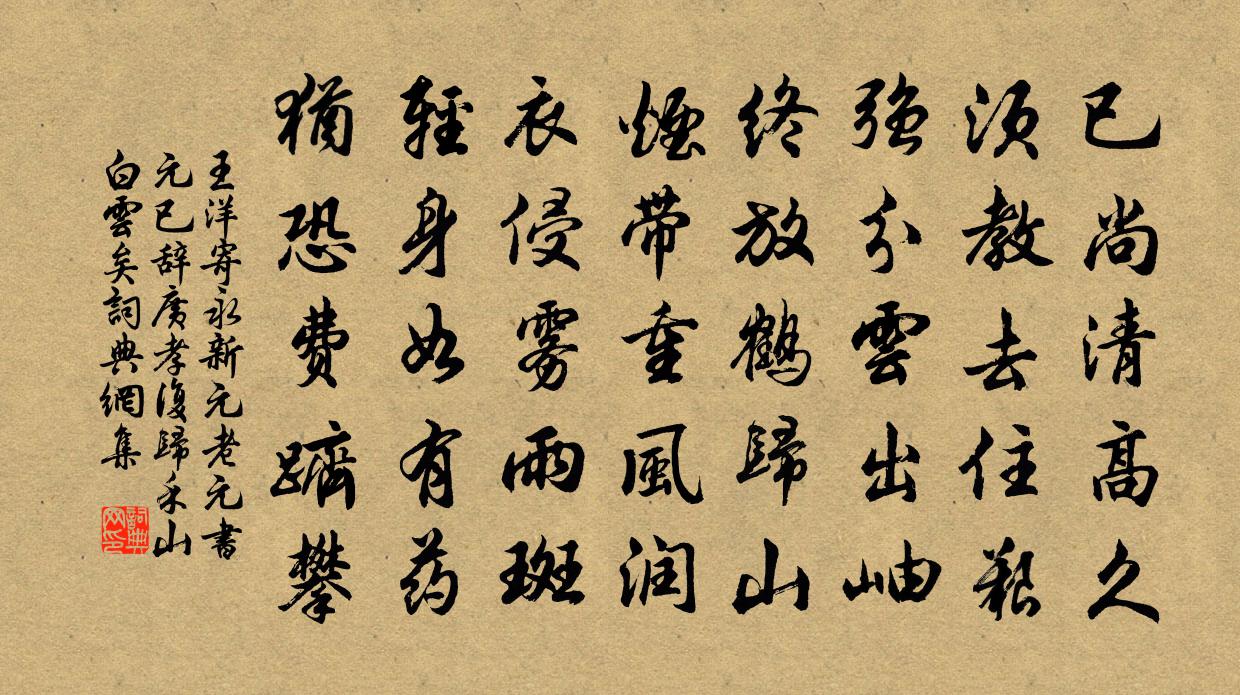 已尚清高久
湏教去住艱
强分雲出岫
終放鶴歸山
煙带重風润
衣侵雾雨斑
輕身如有药
猶恐費躋攀
王洋寄永新元老元書
元已辞廣孝復歸禾山
白雲矣詞典網集
詞典
网印